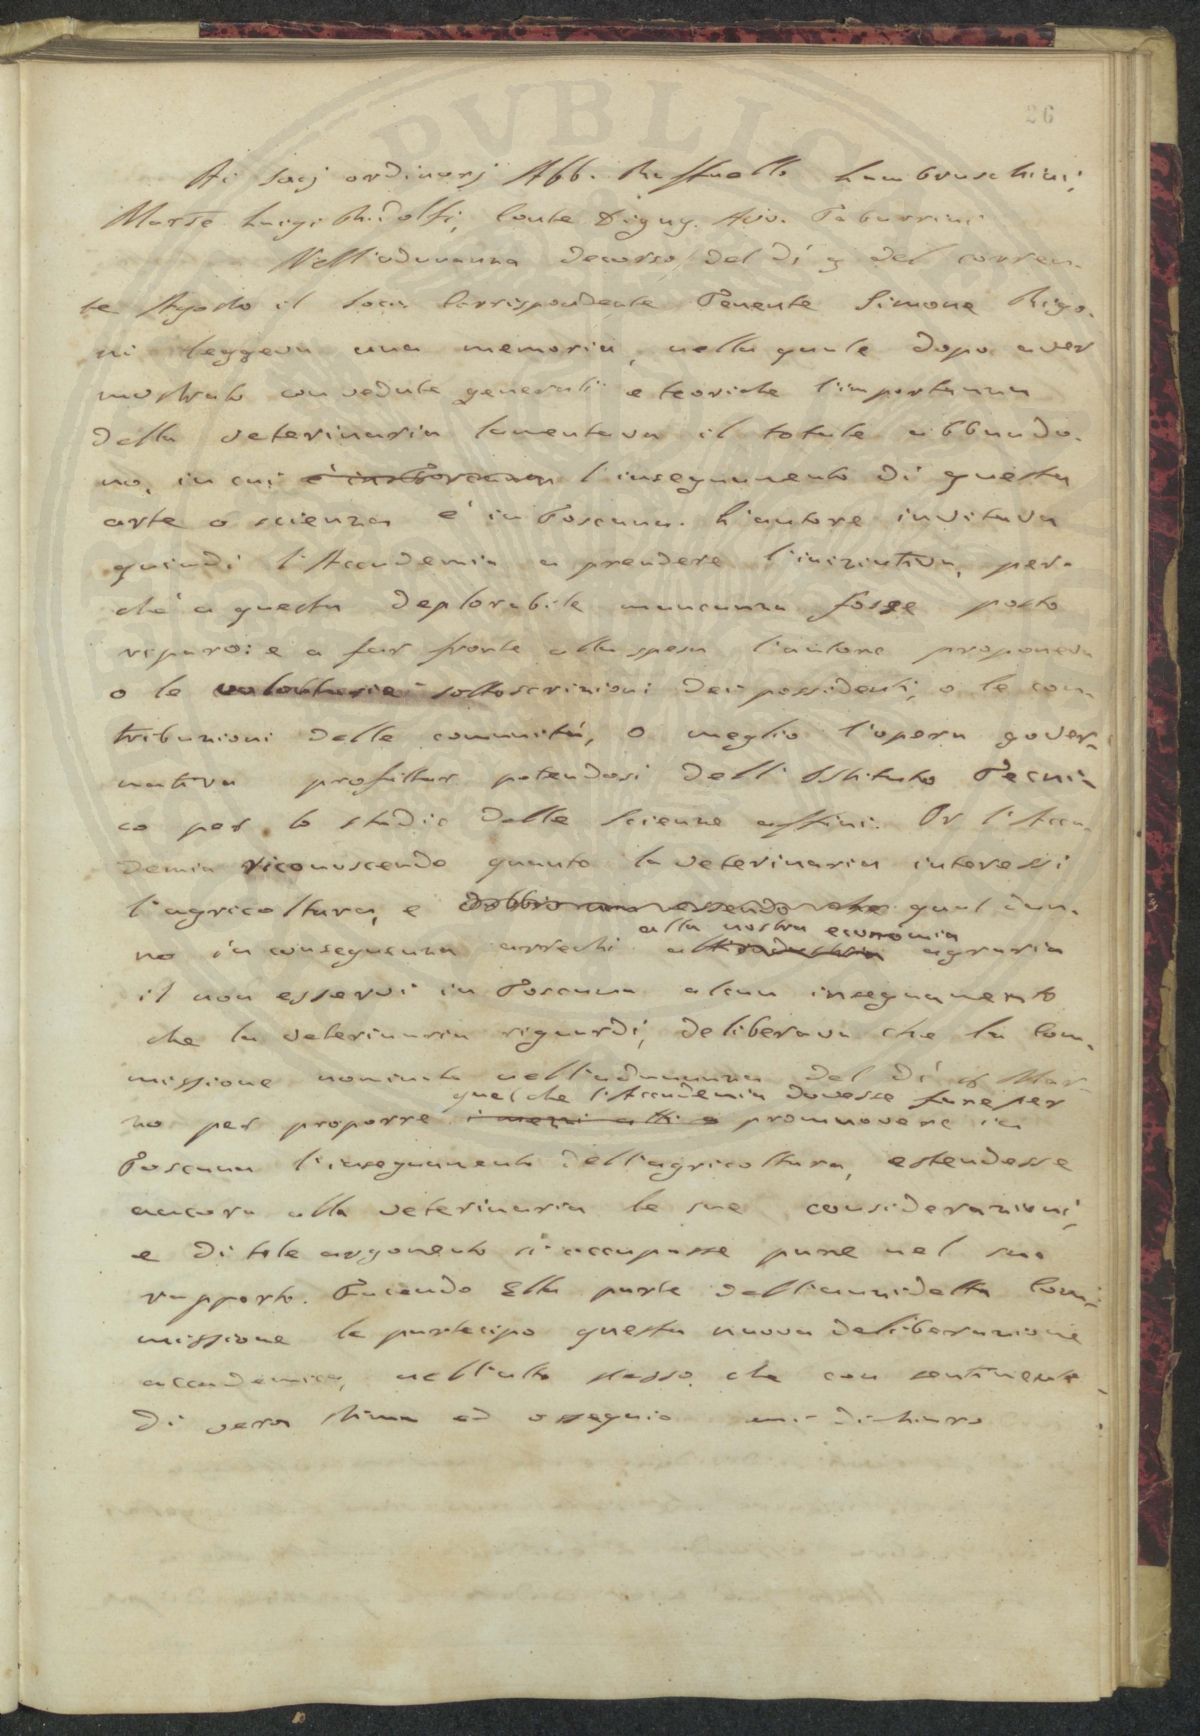 26
Ai Socj ordinarj Abb. Raffaello Lambruschini,
March.e Luigi Ridolfi, Conte Digny. Avv. Taburrini
Nell'adunanza decorsa del dì 9 del corren-
te Agosto il Socio Corrispondente Tenente Simone Rigo-
ni leggeva una memoria, nella quale dopo aver
mostrato con vedute generali e teoriche l'importanza
della veterinaria lamentava il totale abbando-
no, in cui l'insegnamento di questa
arte o scienza è in Toscana. L'autore invitava
quindi l'Accademia a prendere l'iniziativa, per-
chè a questa deplorabile mancanza fosse posto
riparo: e a far fronte alla spesa l'autore proponeva
o le volontarie sottoscrizioni dei possidenti, o le con-
tribuzioni delle comunità, o meglio l'opera gover-
nativa profittar potendosi dell'Istituto Tecni-
co per lo studio delle Scienze affini. Or l'Acca-
demia riconoscendo quanto la veterinaria interessi
l'agricoltura, e dubbio non essendo che qual dan-
alla nostra economia
no in conseguenza arrechi all'industria agraria
il non esservi in Toscana alcun insegnamento
che la veterinaria riguardi, deliberava che la Com-
missione nominata nell'adunanza del dì Mar-
quel che l'Accademia dovesse fare per
zo per proporre i mezzi atti a promuovere in
Toscana l'insegnamento dell'agricoltura, estendesse
ancora alla veterinaria le sue considerazioni,
e di tale argomento si occupasse pure nel suo
rapporto. Facendo Ella parte dell'anzidetta Com-
missione le partecipo questa nuova deliberazione
accademica, nell'atto stesso che con sentimento
di vera stima ed ossequio mi dichiaro